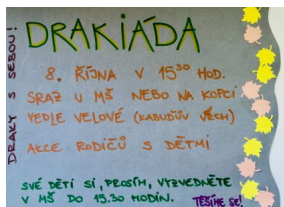 DRAKIÁDA
8. ŘÍJNA V 15³⁰ HOD.
SRAZ U MŠ NEBO NA KOPCI
VEDLE VELOVÉ (KABŮDŮV VĚCH)
AKCE RODIČŮ S DĚTMI
SVÉ DĚTI SI, PROSÍM, VYZVEDNĚTE
V MŠ DO 15.30 HODIN. TĚŠÍME SE!
DRAKY S SEBOU!